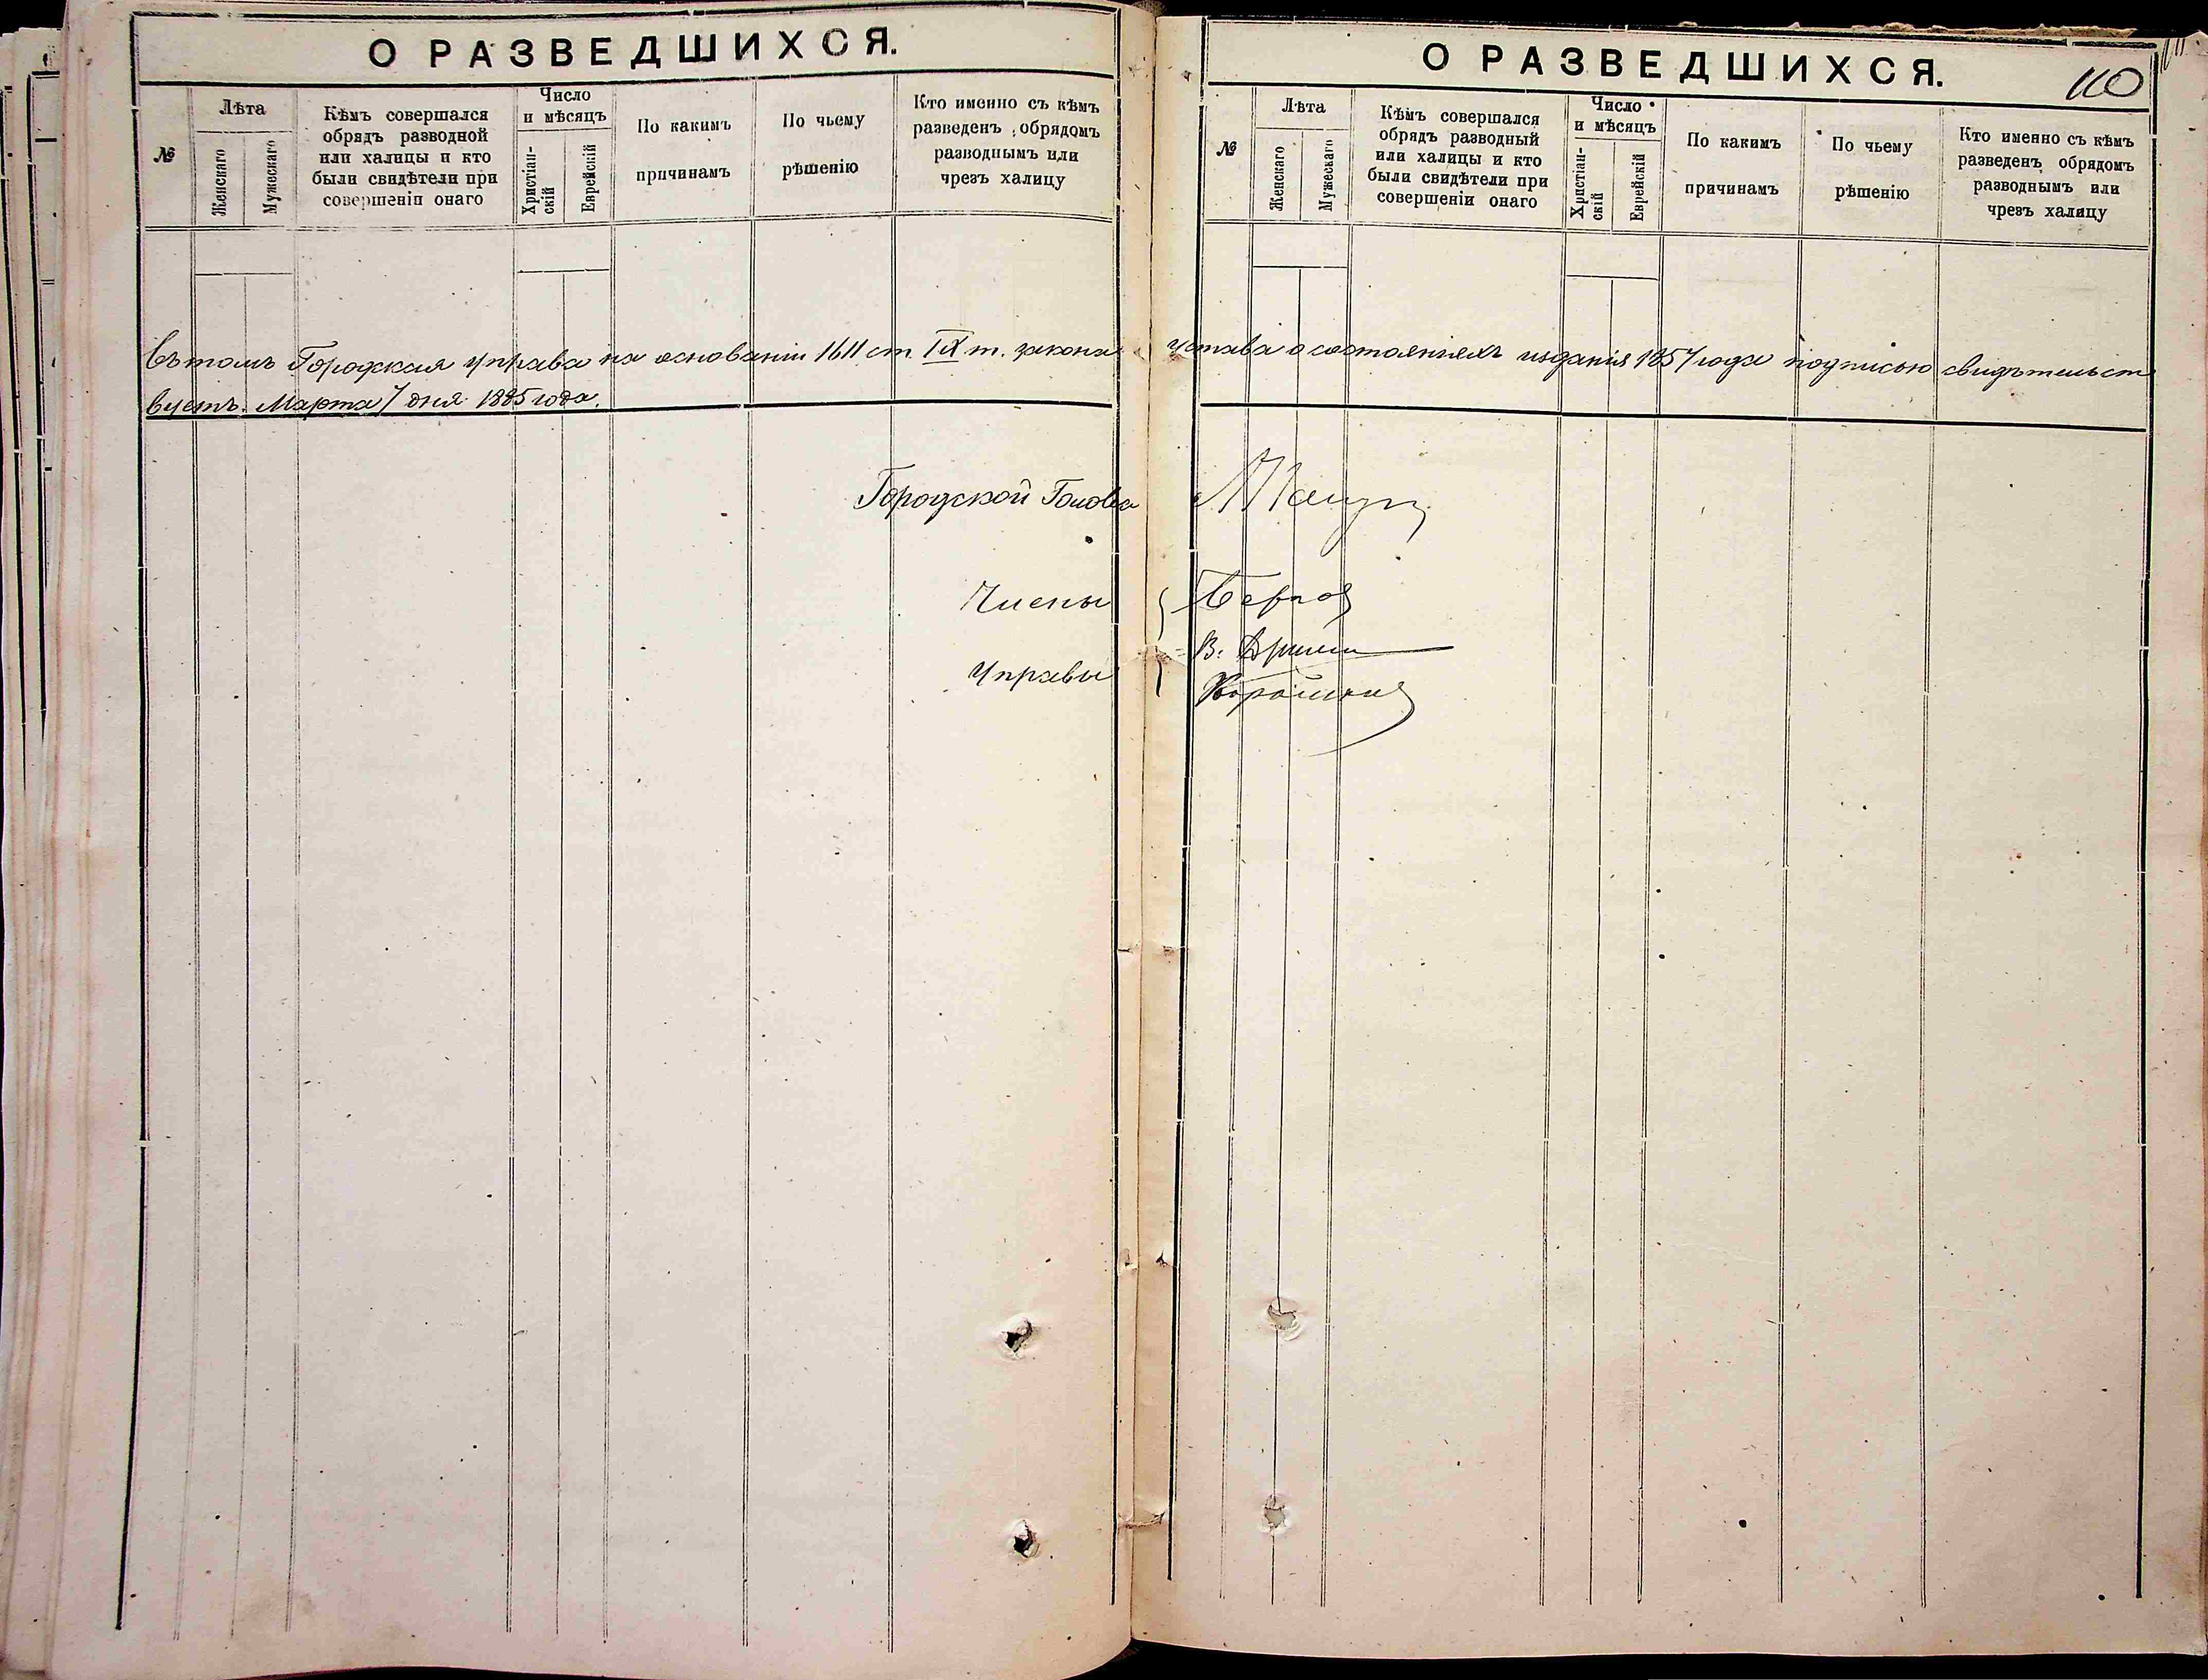 О РАЗВЕДШИХСЯ.
№
Лѣта
Женскаго
Мужескаго
Кѣмъ совершался
обрядъ разводной
или халицы и кто
были свидѣтели при
совершеніи онаго
Число
и мѣсяцъ
Христіан-
скій
Еврейскій
По какимъ
причинамъ
По чьему
рѣшенію
Кто именно съ кѣмъ
разведенъ обрядомъ
разводнымъ или
чрезъ халицу
Въ томъ Городская Управа на основаніи 1611 ст. IX т. закона
вуетъ. Марта 7 дня 1885 года.
Городской Голова
Члены
Управы
О РАЗВЕДШИХСЯ.
110
№
Лѣта
Женскаго
Мужескаго
Кѣмъ совершался
обрядъ разводный
или халицы и кто
были свидѣтели при
совершеніи онаго
Число
и мѣсяцъ
Христіан-
скій
Еврейскій
По какимъ
причинамъ
По чьему
рѣшенію
Кто именно съ кѣмъ
разведенъ обрядомъ
разводнымъ или
чрезъ халицу
устава о состояніяхъ изданія 1857 года подписью свидѣтельст
В.